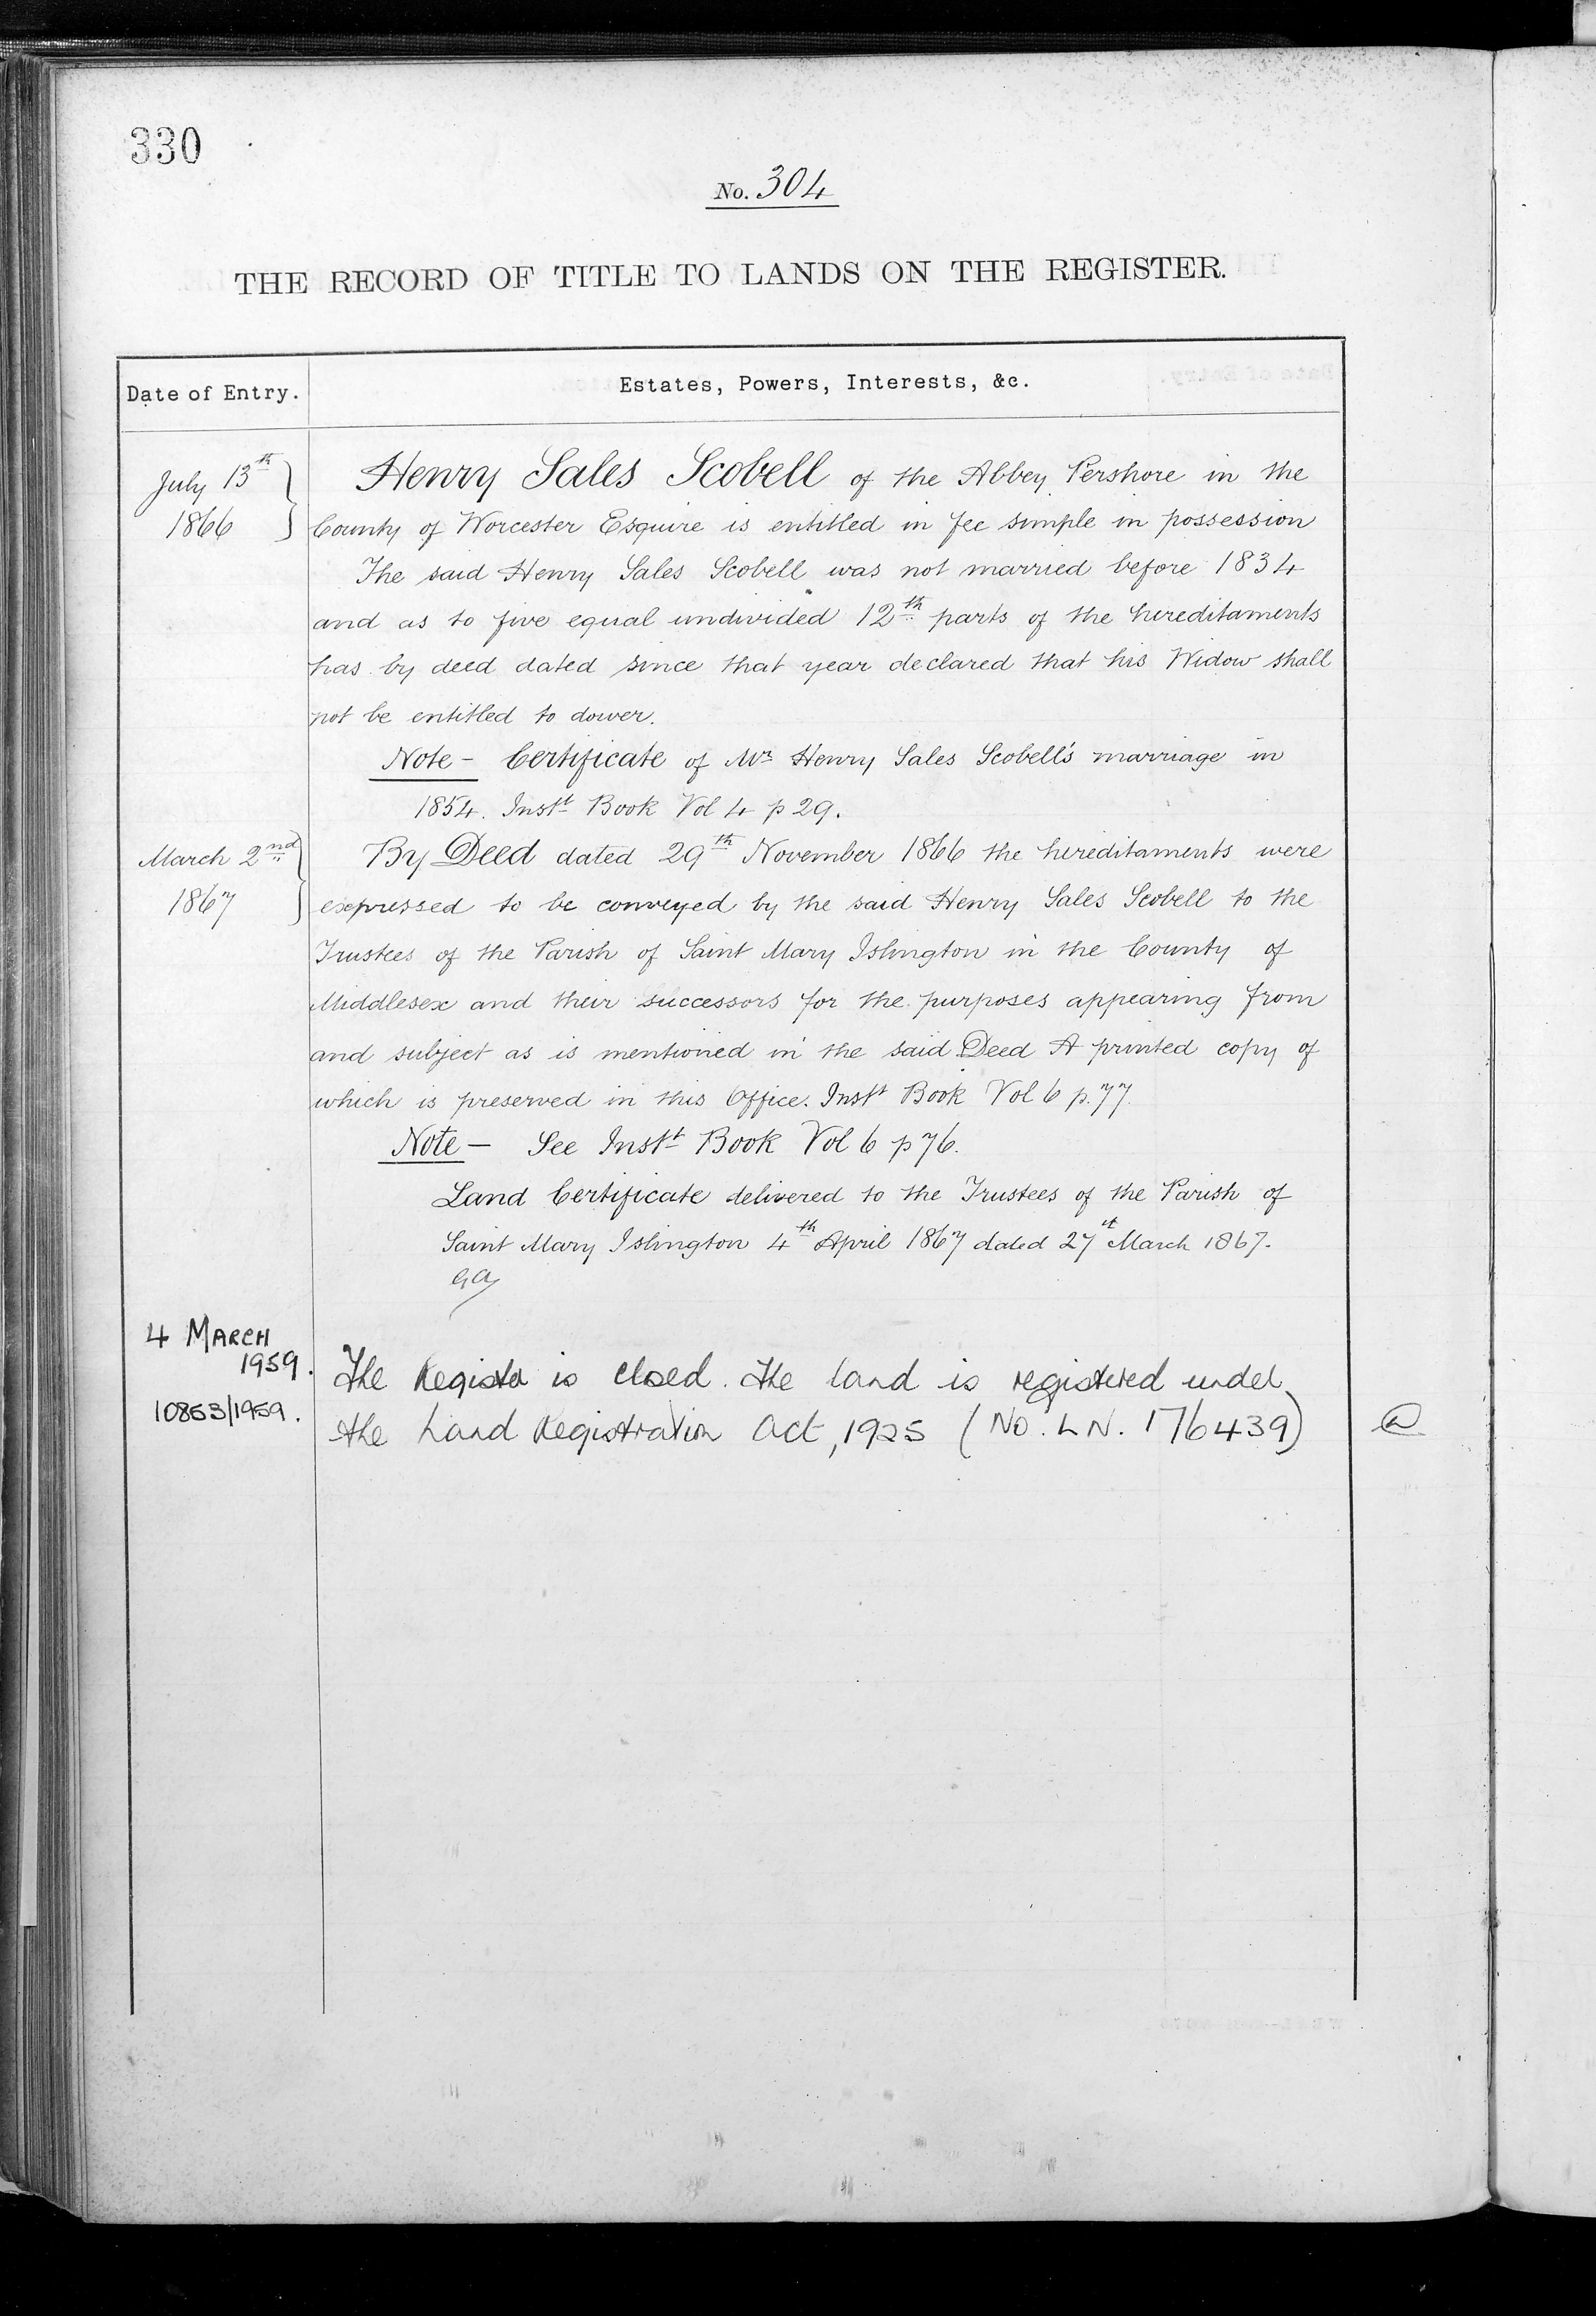 330
No. 304
THE RECORD OF TITLE TO LANDS ON THE REGISTER.
Date of Entry.
Estates, Powers, Interests, &c.
July 13th
1866
Henry Sales Scobell of the Abbey Pershore in the
County of Worcester Esquire is entitled in fee simple in possession
The said Henry Sales Scobell was not married before 1834
and as to five equal undivided 12th parts of the hereditaments
has by deed dated since that year declared that his Widow shall
not be entitled to dower.
Note - Certificate of Mr Henry Sales Scobell's marriage in
1854. Instt Book Vol 4 p 29.
March 2nd
1867
By Deed dated 29th November 1866 the hereditaments were
expressed to be conveyed by the said Henry Sales Scobell to the
Trustees of the Parish of Saint Mary Islington in the County of
Middlesex and their successors for the purposes appearing from
and subject as is mentioned in the said Deed A printed copy of
which is preserved in this Office. Instt Book Vol 6 p. 77.
Note - See Instt Book Vol 6 p 76.
Land Certificate delivered to the Trustees of the Parish of
Saint Mary Islington 4th April 1867 dated 27th March 1867.
4 MARCH
1959.
10853/1959.
The Register is closed. The land is registered under
the Land Registration Act, 1925 (No. LN. 176439)